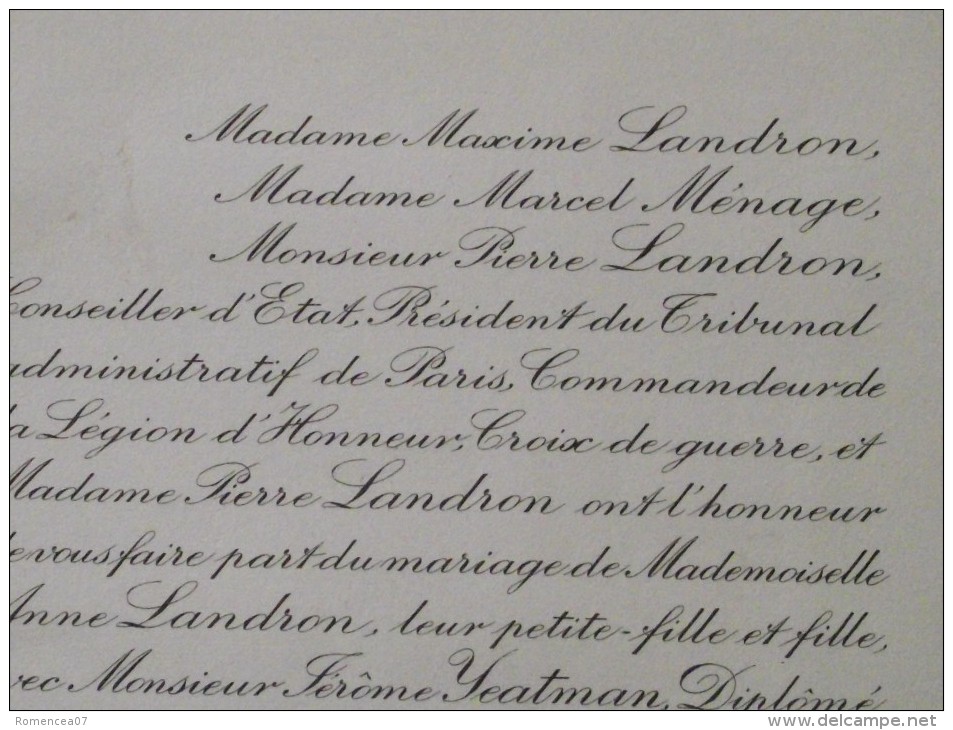 Madame Maxime Landron,
Madame Marcel Ménage,
Monsieur Pierre Landron,
Conseiller d'Etat, Président du Tribunal
administratif de Paris, Commandeur de
la Légion d'Honneur, Croix de guerre, et
Madame Pierre Landron ont l'honneur
de vous faire part du mariage de Mademoiselle
Anne Landron, leur petite-fille et fille,
avec Monsieur Jérôme Yeatman, Diplômé
Romencea07
www.delcampe.net